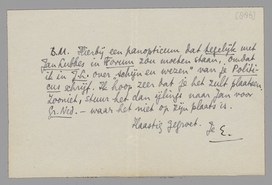 B.M. Hierbij een panopticum dat tegelijk met
Jan Lubbes in Forum zou moeten staan, omdat
ik in J.L. over "schijn en wezen" van je Politi-
cus schrijf. Ik hoop zeer dat je het zult plaatsen;
zooniet, stuur het dan ijlings naar Jan voor
Gr. Ned. — waar het niet op zijn plaats is.
Haastig gegroet. Je E.